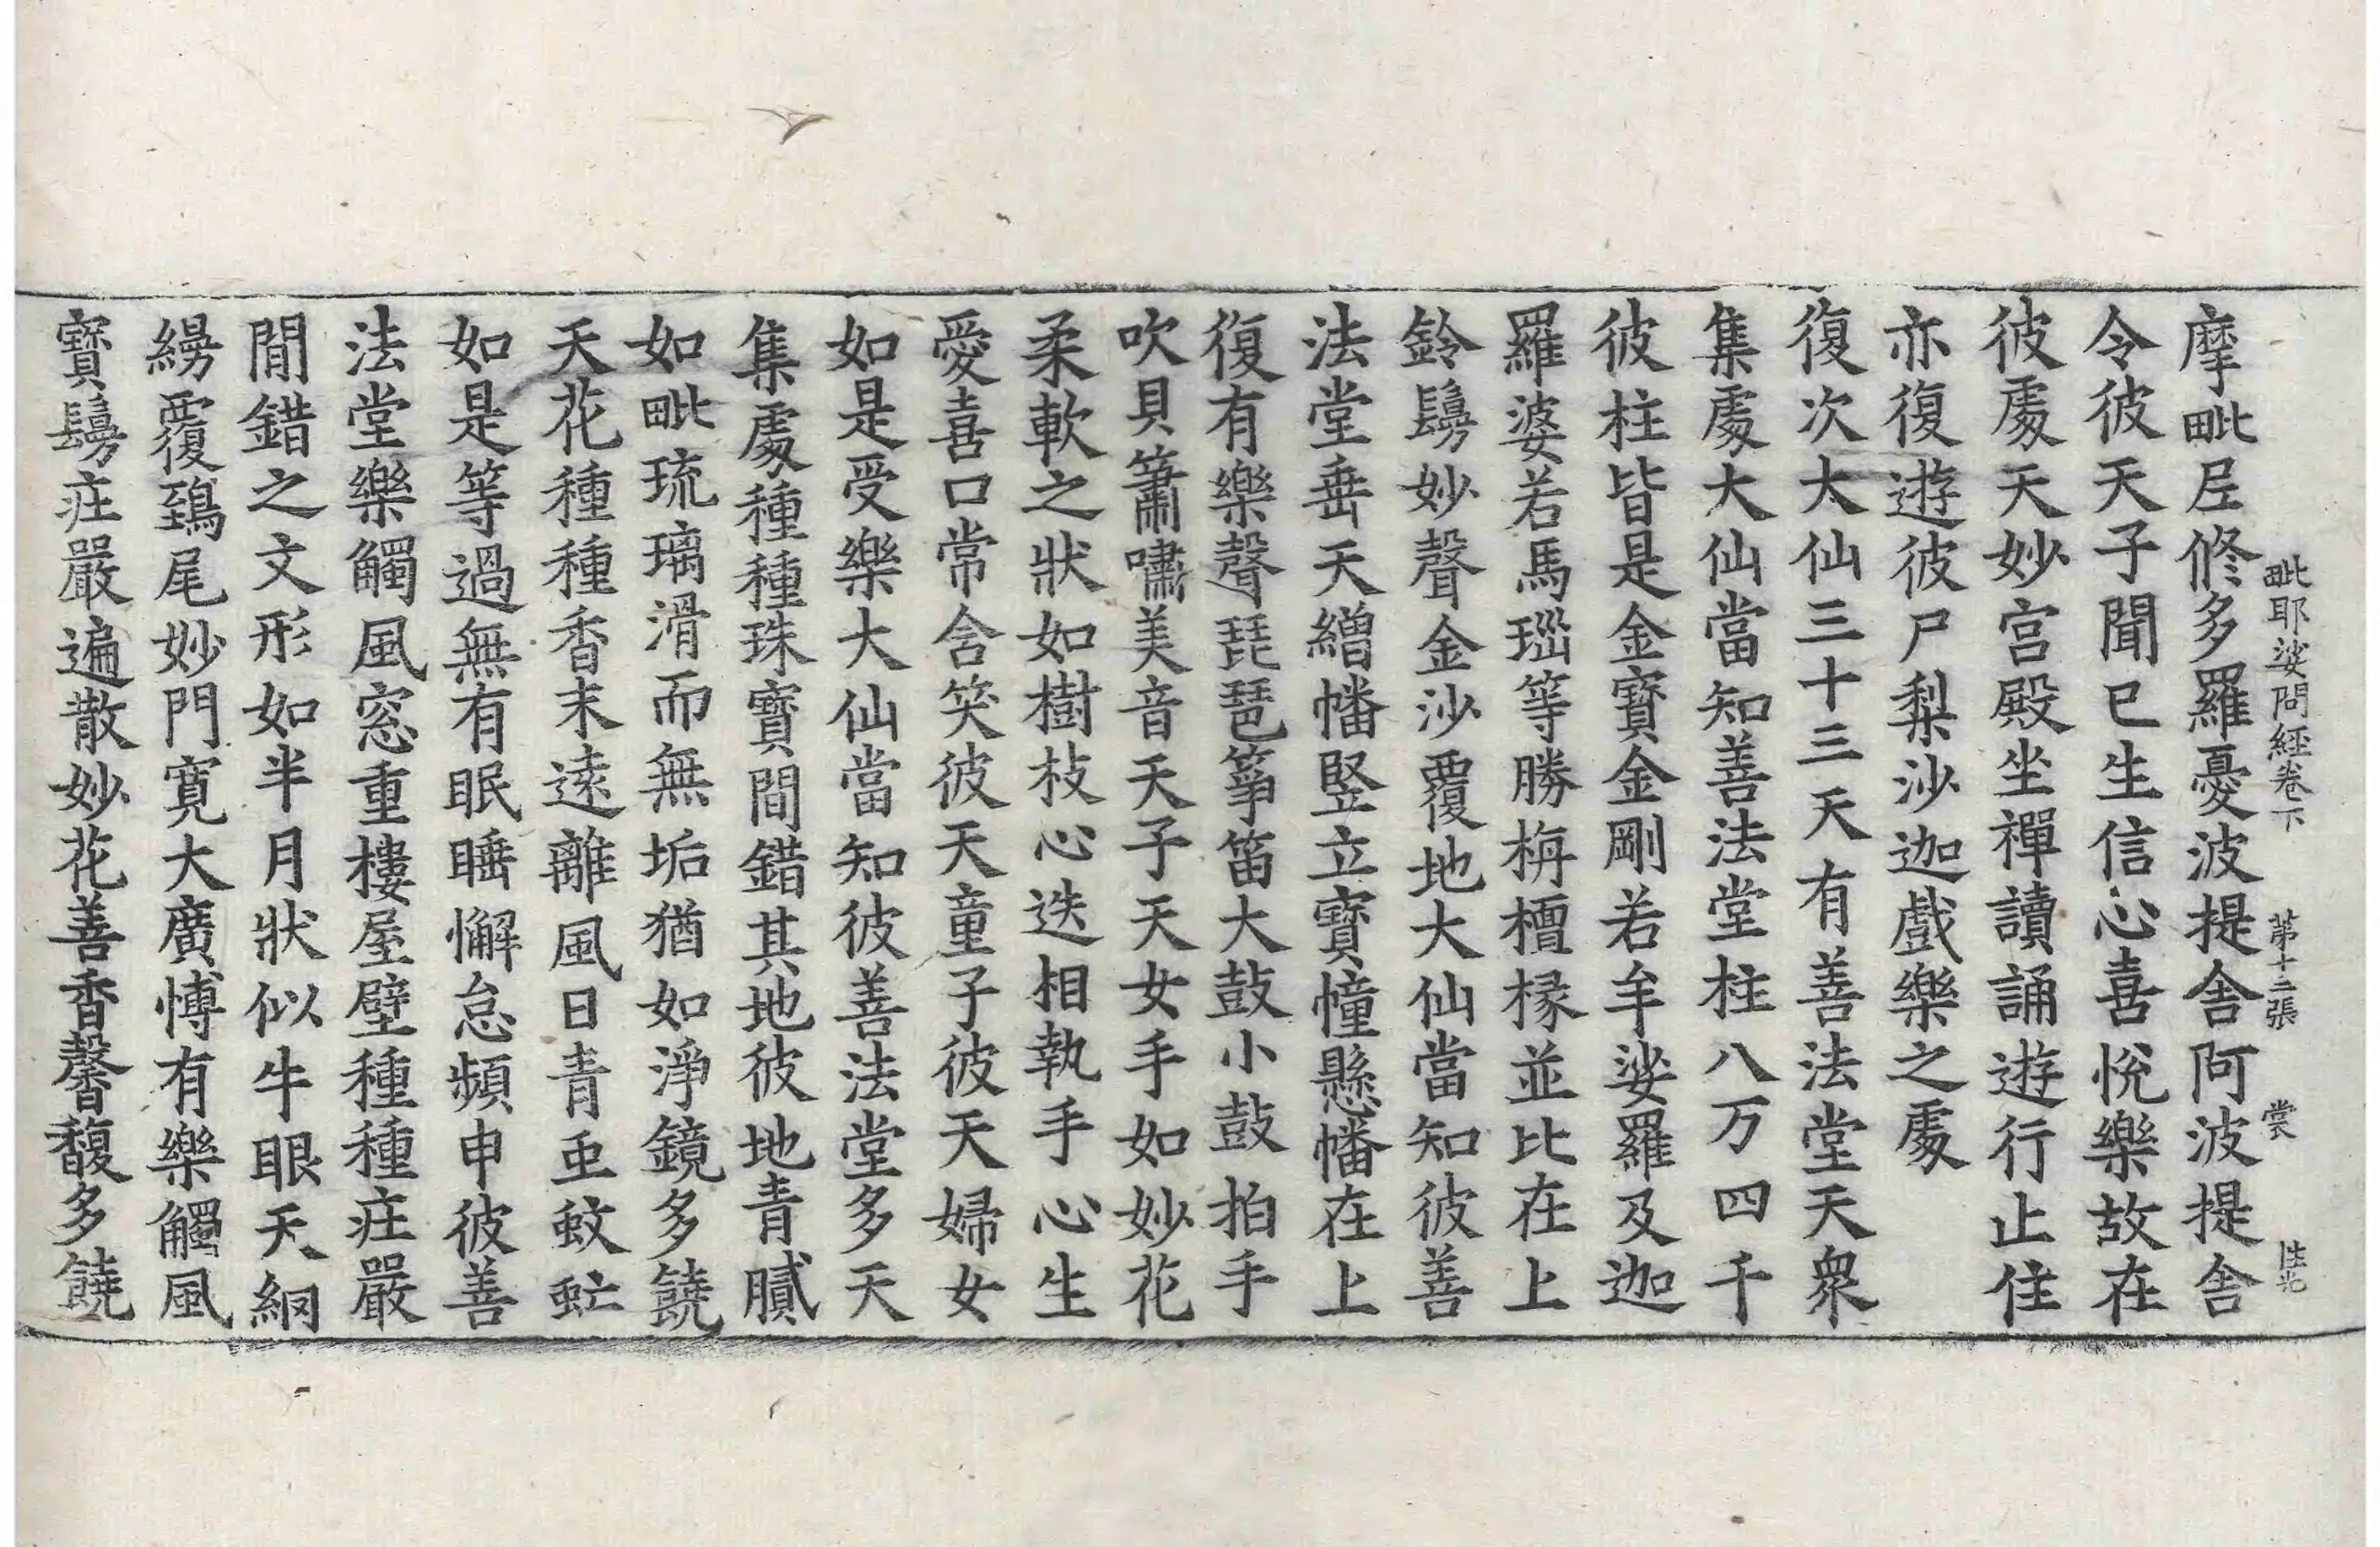 毗耶娑問經卷下　第十二張　裳　性光
摩毗𡰱修多羅憂波提舍阿波提舍
令彼天子聞已生信心喜悅樂故在
彼處天妙宮殿坐禪讀誦遊行止住
亦復遊彼尸梨沙迦戲樂之處
復次大仙三十三天有善法堂天衆
集處大仙當知善法堂柱八万四千
彼柱皆是金寶金剛若牟娑羅及迦
羅婆若馬瑙等勝栴檀椽並比在上
鈴鬘妙聲金沙覆地大仙當知彼善
法堂垂天繒幡竪立寶幢懸幡在上
復有樂聲琵琶箏笛大鼓小鼓拍手
吹貝簫嘯美音天子天女手如妙花
柔軟之狀如樹枝心迭相執手心生
愛喜口常含笑彼天童子彼天婦女
如是受樂大仙當知彼善法堂多天
集處種種珠寶間錯其地彼地青膩
如毗琉璃滑而無垢猶如淨鏡多饒
天花種種香末遠離風日青䖝蚊虻
如是等過無有眠睡懈怠頻申彼善
法堂樂觸風窓重樓屋壁種種莊嚴
間錯之文形如半月狀似牛眼天網
縵覆鵄尾妙門寬大廣愽有樂觸風
寶鬘莊嚴遍散妙花善香馨馥多饒